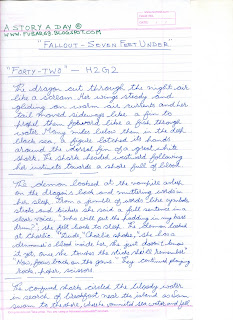 A STORY A DAY @
WWW.FUBAR69.BLOGSPOT.COM
"FALLOUT - SEVEN FEET UNDER"
"FORTY-TWO" - H2G2
The dragon cut through the night air
like a scream. Her wings steady and
gliding on warm air currents and her
tail moved sideways like a fin to
propel them forward like a fish through
water. Many miles below them in the deep
black sea, a figure latched its hands
around the dorsal fin of a great white
shark. The shark headed instinct following
her instincts towards a shore full of blood.
The demon looked at the vampire asleep
on the dragon's back and muttering words in
her sleep. From a jumble of words like
steaks and kitchen she said a full sentence in a
clear voice, "Who will put the pudding in my bass
drum?", she fell back to sleep. The demon looked
at Charlie. "Dude," Charlie spoke, "she has a
drummer's blood inside her, she just doesn't know
it yet, once she touches the sticks she'll remember."
They continued playing
rock, paper, scissors
The conjured shark circled the bloody water
in search of breakfast near the island so
swam to the shore, sharks